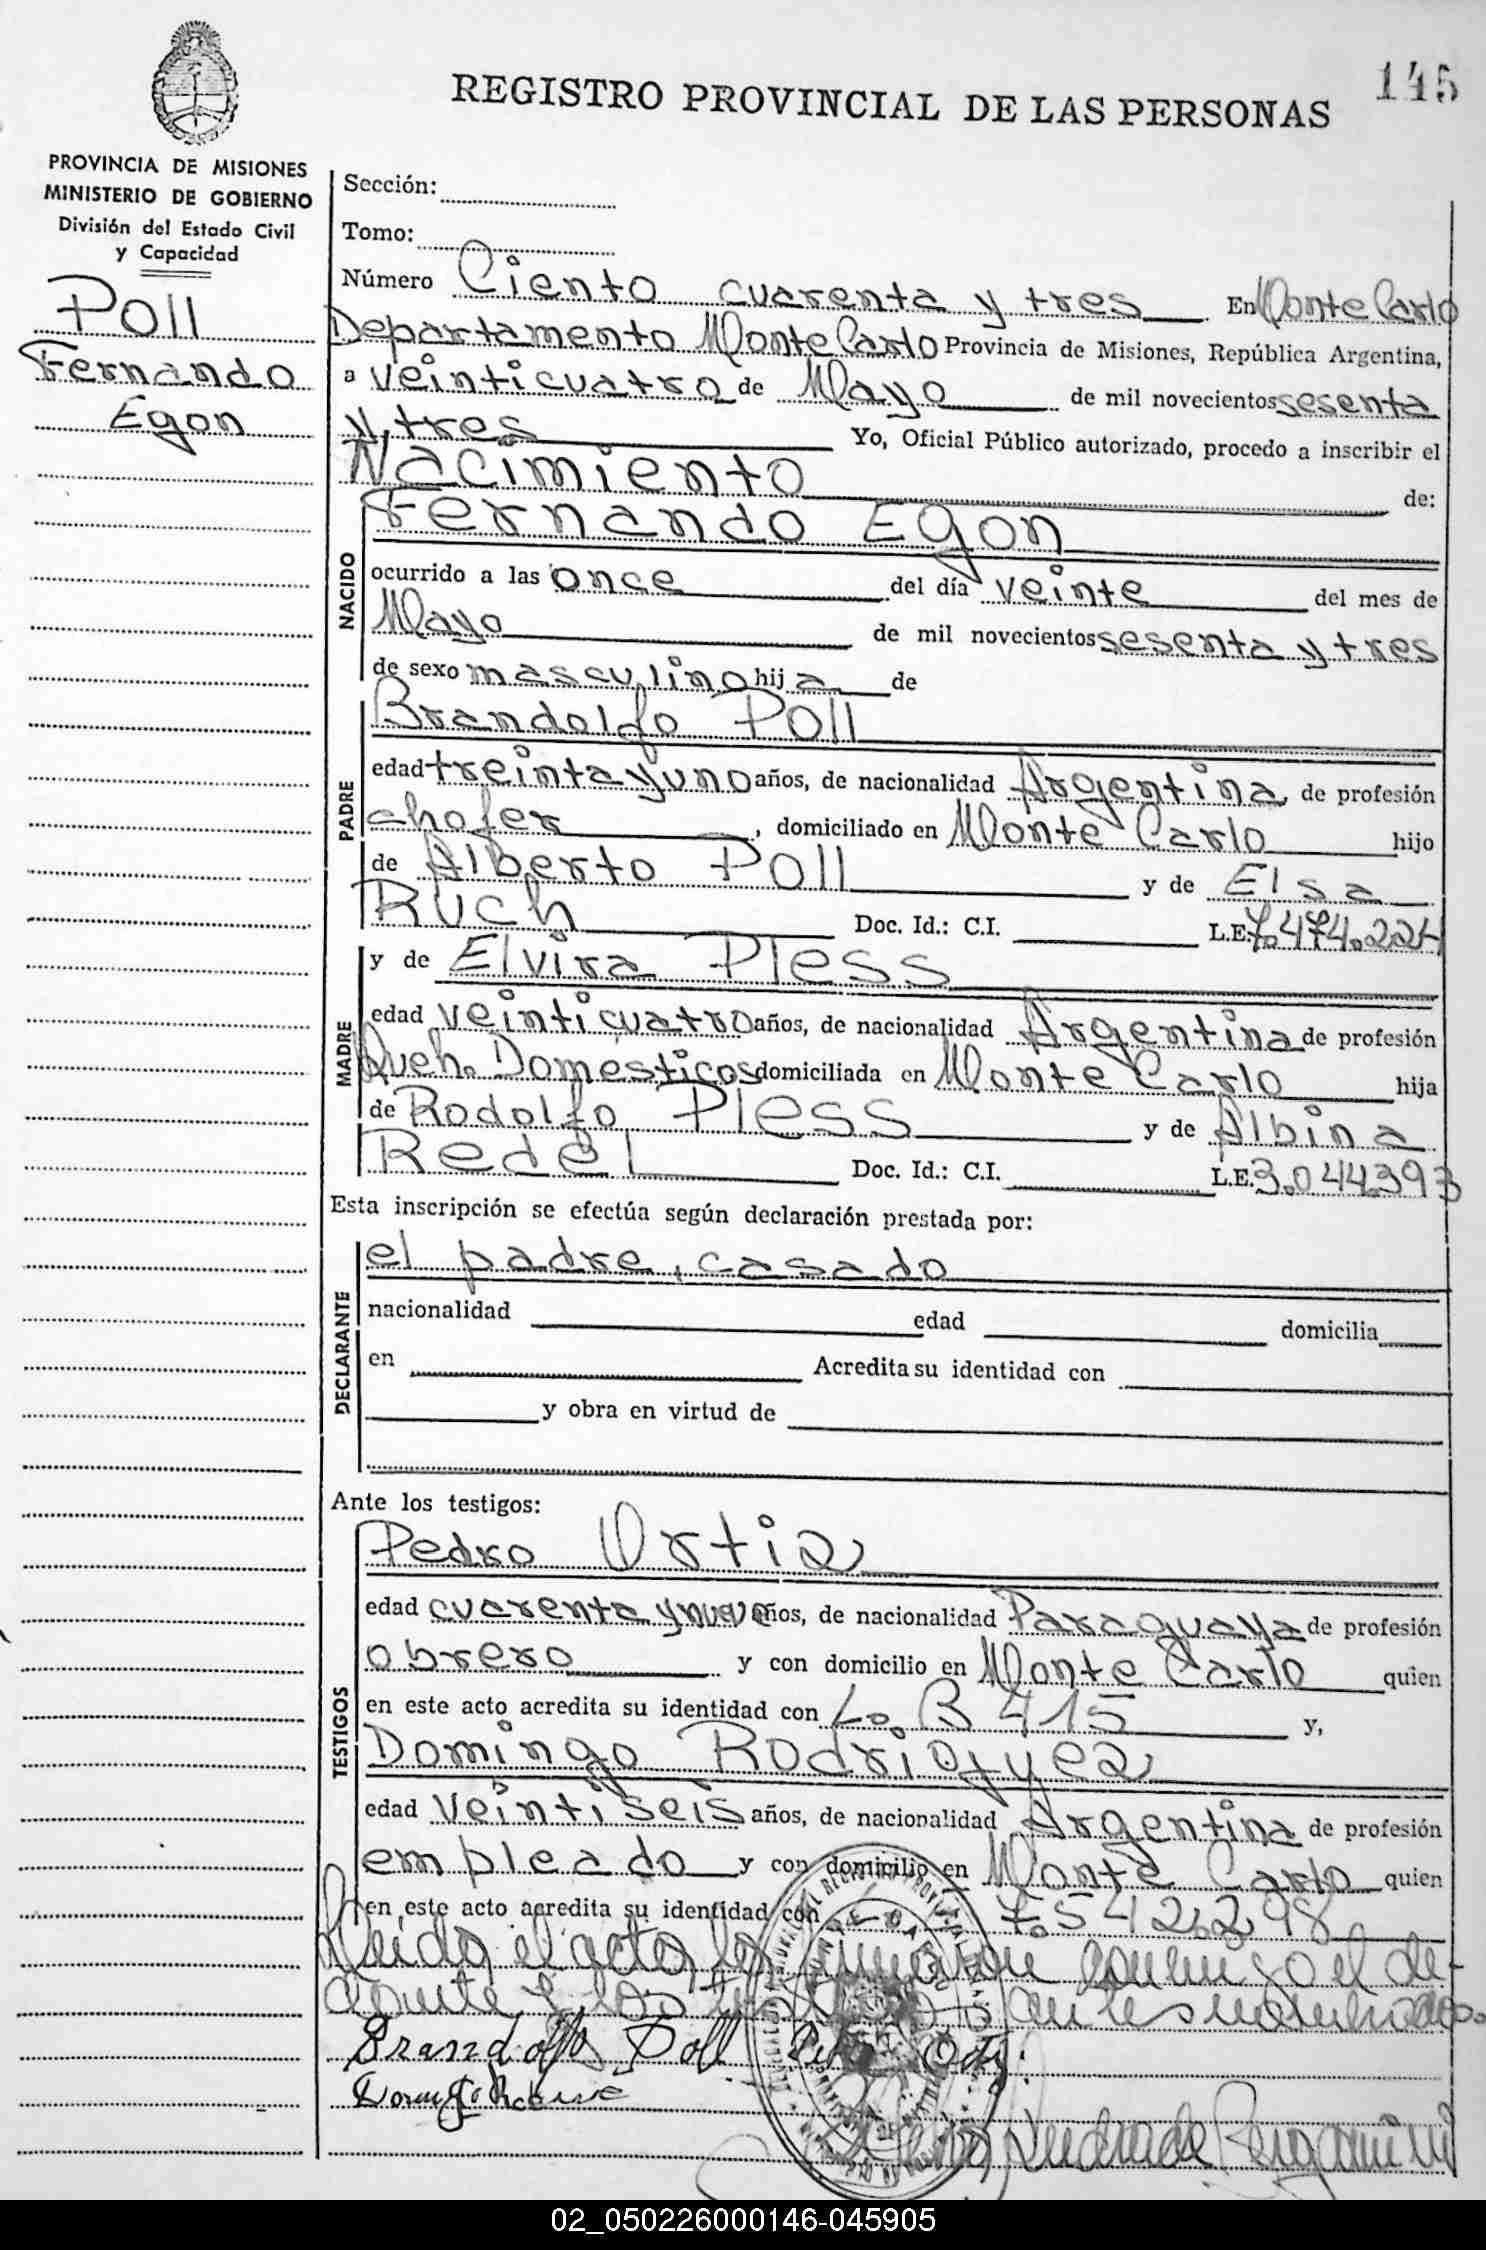 145
REGISTRO PROVINCIAL DE LAS PERSONAS
PROVINCIA DE MISIONES
MINISTERIO DE GOBIERNO
División del Estado Civil
y Capacidad
Poll
Fernando
Egon
Sección:
Tomo:
Número Ciento cuarenta y tres En Monte Carlo
Departamento Monte Carlo Provincia de Misiones, República Argentina,
a veinticuatro de Mayo de mil novecientos sesenta
y tres Yo, Oficial Público autorizado, procedo a inscribir el
Nacimiento de:
NACIDO
Fernando Egon
ocurrido a las once del día veinte del mes de
Mayo de mil novecientos sesenta y tres
de sexo masculino hija de
PADRE
Brandolfo Poll
edad treinta y uno años, de nacionalidad Argentina, de profesión
chofer, domiciliado en Monte Carlo hijo
de Alberto Poll y de Elsa
Ruch Doc. Id.: C.I. L.E. 7.474.224
MADRE
y de Elvira Pless
edad veinticuatro años, de nacionalidad Argentina de profesión
Queh. Domesticos domiciliada en Monte Carlo hija
de Rodolfo Pless y de Albina
Redel Doc. Id.: C.I. L.E. 3.044.393
Esta inscripción se efectúa según declaración prestada por:
DECLARANTE
el padre, casado
nacionalidad edad domicilia
en Acredita su identidad con
y obra en virtud de
Ante los testigos:
TESTIGOS
Pedro Ortiz
edad cuarenta y nueve años, de nacionalidad Paraguaya de profesión
obrero y con domicilio en Monte Carlo quien
en este acto acredita su identidad con L. B 415 y,
Domingo Rodriguez
edad veintiseis años, de nacionalidad Argentina de profesión
empleado y con domicilio en Monte Carlo quien
en este acto acredita su identidad con 7.542.298
Leida el acta, la conmigo el de-
y los antes
Brandolfo Poll
02_050226000146-045905